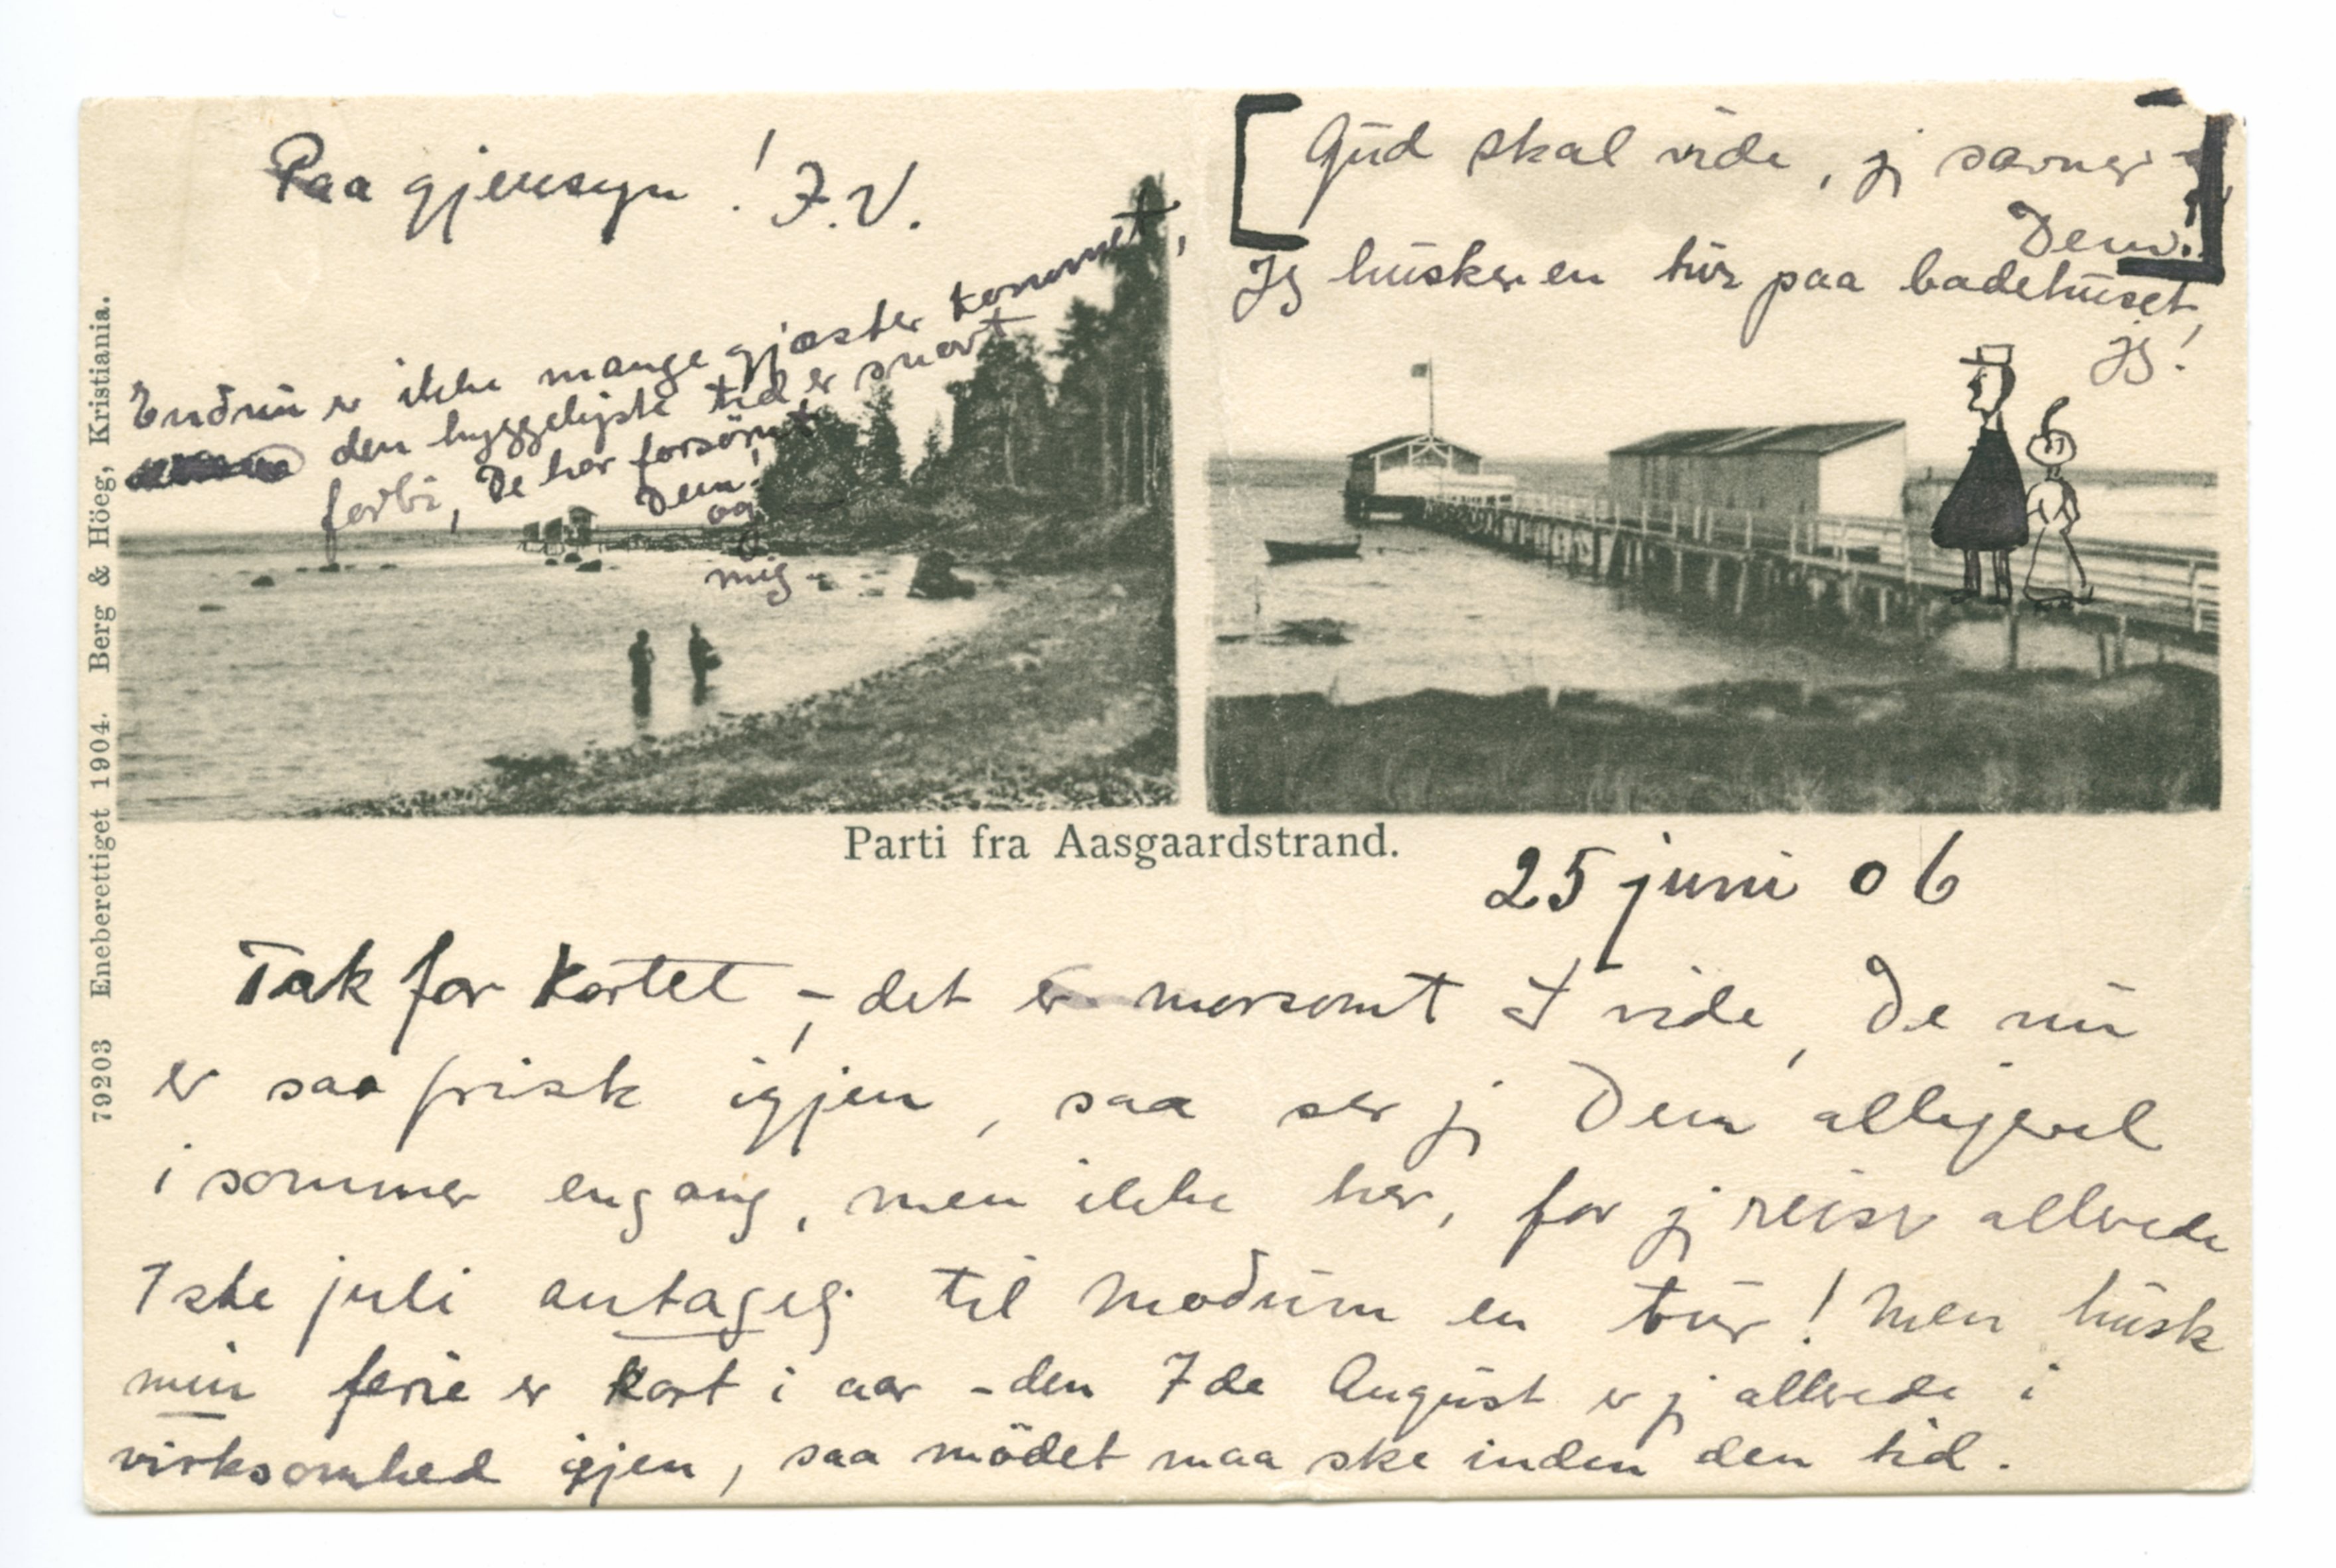 Paa gjensyn! F.V.
Endnu er ikke mange gjæster kommet,
den hyggeligste tid er snart
forbi, De har forsömt
Dem!
og
mig -
[Gud skal vide, jg savner
Dem.]
Jg husker en tur paa badehuset,
jg!
Parti fra Aasgaardstrand.
79203 Eneberettiget 1904. Berg & Höeg, Kristiania.
25 juni 06
Tak for kortet, - det er morsomt at vide, De nu
er saa frisk igjen, saa ser jg Dem alligevel
i sommer engang, men ikke her, for jg reiser allerede
1ste juli antagelig til Modum en tur! Men husk
min ferie er kort i aar - den 7de August er jg allerede i
virksomhed igjen, saa mödet maa ske inden den tid.